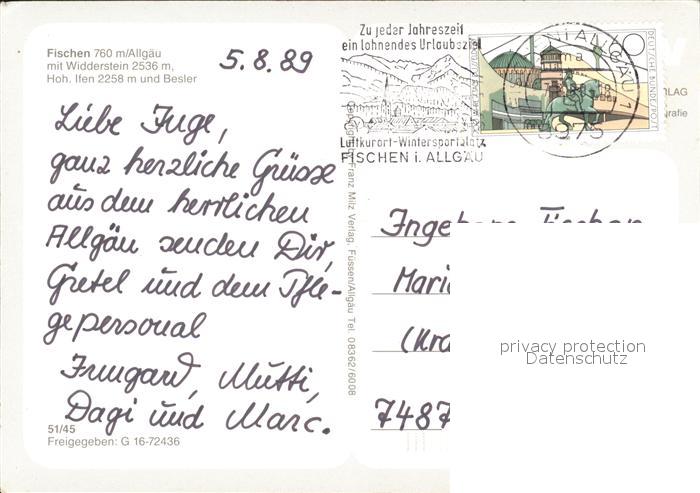 Fischen 760 m/Allgäu
mit Widderstein 2536 m,
Hoh. Ifen 2258 m und Besler
5.8.89
Liebe Inge,
ganz herzliche Grüsse
aus dem herrlichen
Allgäu senden Dir,
Gretel und dem Pfle-
gepersonal
Irmgard, Mutti,
Dagi und Marc.
51/45
Freigegeben: G 16-72436
Zu jeder Jahreszeit
ein lohnendes Urlaubsziel
Luftkurort-Wintersportplatz
FISCHEN i. ALLGÄU
8975
60
DEUTSCHE BUNDESPOST
Franz Milz Verlag, Füssen/Allgäu Tel. 08362/6008
Ingeborg Fischer
Mari
(Kra
7487
privacy protection
Datenschutz